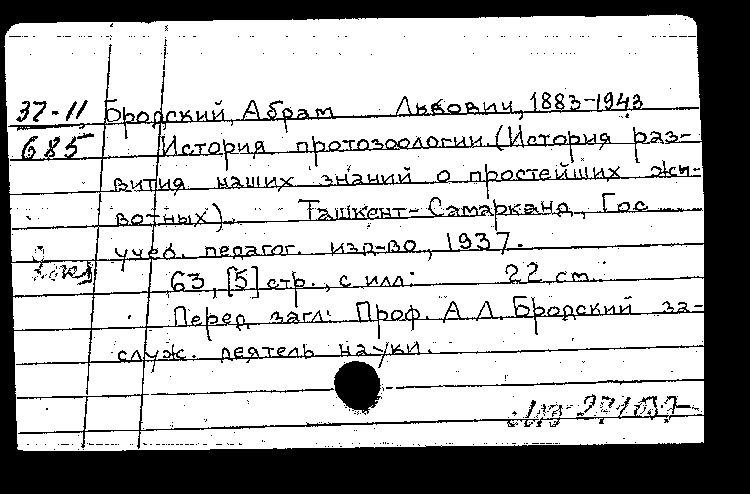 37-11 Бродский, Абрам Львович, 1883-1943
685 История протозоологии. (История раз-
вития наших знаний о простейших жи-
вотных). Ташкент-Самарканд, Гос
учеб. педагог. изд-во, 1937.
63, [5] стр., с илл: 22 cm.
Перед загл: Проф. А. Л. Бродский за-
служ. деятель науки.